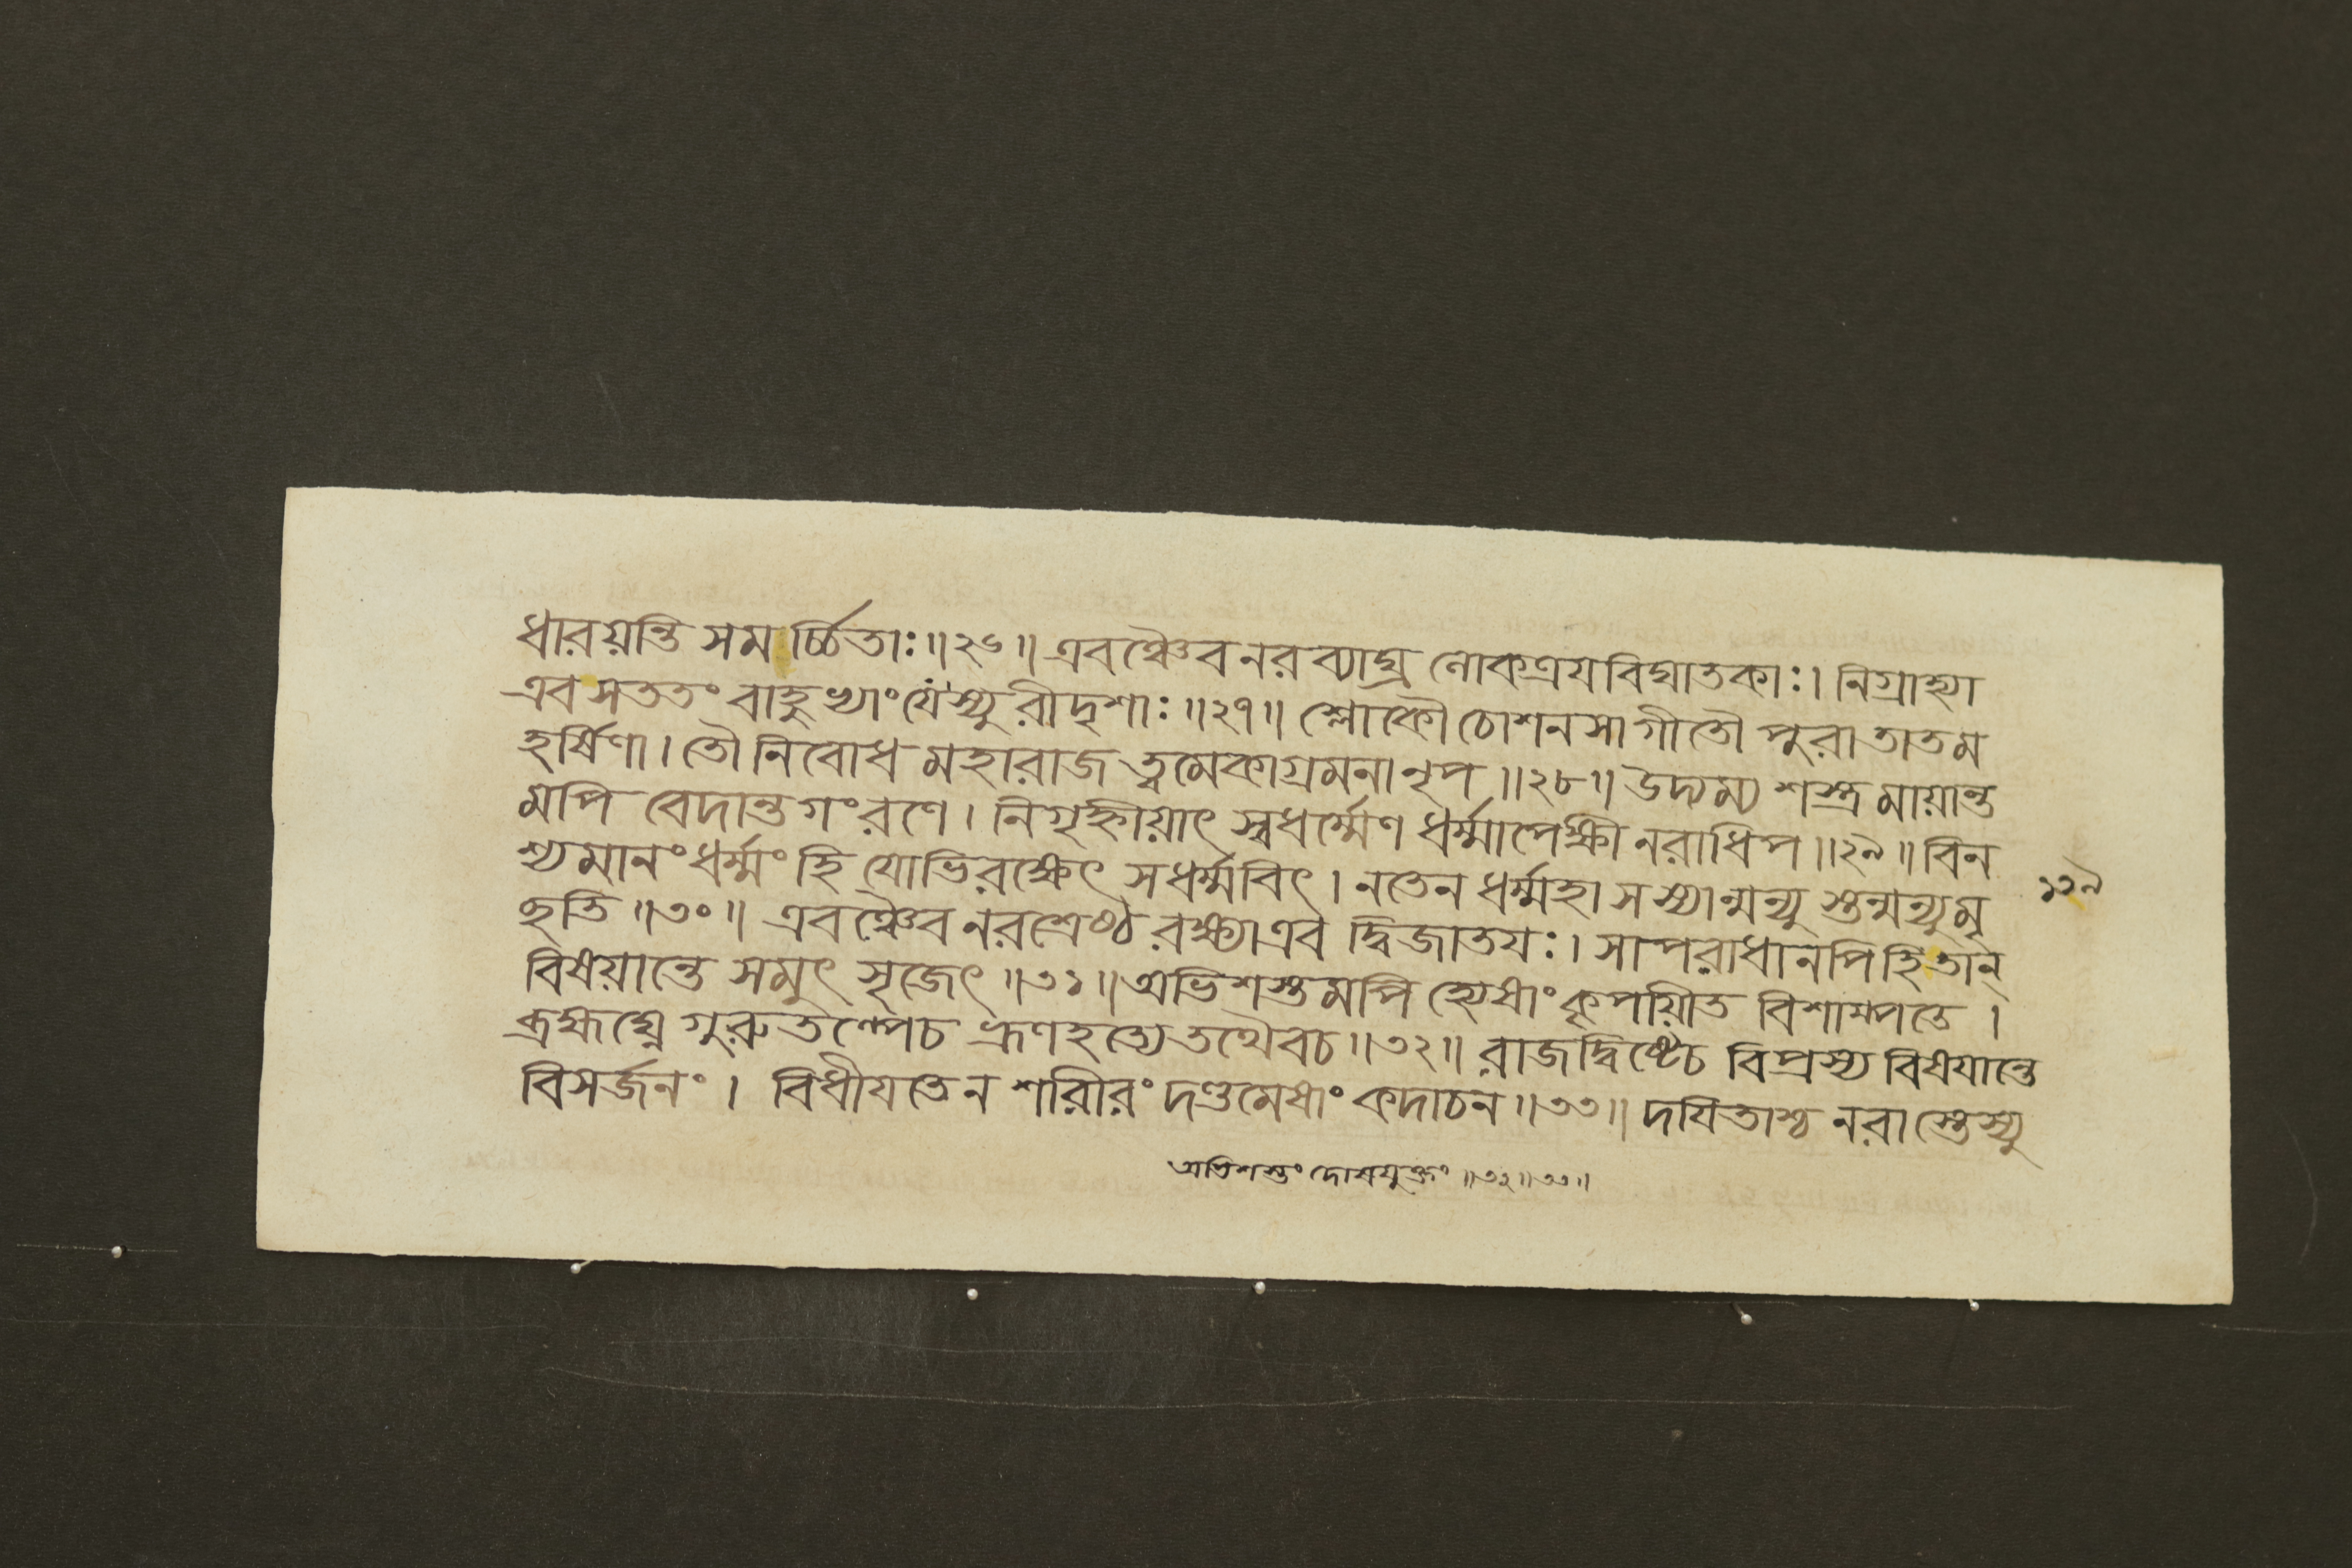 ধারয়ন্তি সমর্চ্চিতাঃ॥২৬॥ এবঞ্চৈব নরব্যাঘ্র লোকত্রযবিঘাতকাঃ। নিগ্রাহ্যা
এব সততং বাহুভ্যাং যে স্যুরীদৃশাঃ॥২৭॥ শ্লোকৌ চোশনসা গীতৌ পুরা তাত ম
হর্ষিণা। তৌ নিবোধ মহারাজ ত্বমেকাগ্রমনা নৃপ॥২৮॥ উদ্যম্য শস্ত্রমায়ান্ত
মপি বেদান্তগং রণে। নিগৃহ্নীয়াৎ স্বধর্ম্মেণ ধর্ম্মাপেক্ষী নরাধিপ॥২৯॥ বিন
শ্যমানং ধর্ম্মং হি যোভিরক্ষেৎ স ধর্ম্মবিৎ। ন তেন ধর্ম্মহা স স্যান্মন্যুস্তন্মন্যুমৃ
চ্ছতি॥৩০॥ এবঞ্চৈব নরশ্রেষ্ঠ রক্ষ্যা এব দ্বিজাতযঃ। সাপরাধানপি হি তান্
বিষয়ান্তে সমুৎসৃজেৎ॥৩১॥ অভিশস্তমপি হ্যেষাং কৃপয়ীত বিশাম্পতে।
ব্রহ্মঘ্নে গুরুতল্পেচ ভ্রূণহত্যে তথৈবচ॥৩২॥ রাজদ্বিষ্টেচ বিপ্রস্য বিষযান্তে
বিসর্জনং। বিধীযতে ন শারীরং দণ্ডমেষাং কদাচন॥৩৩॥ দযিতাশ্চ নরাস্তে স্যু
১২৯
অভিশস্তং দোষযুক্তং॥৩২॥৩৩॥